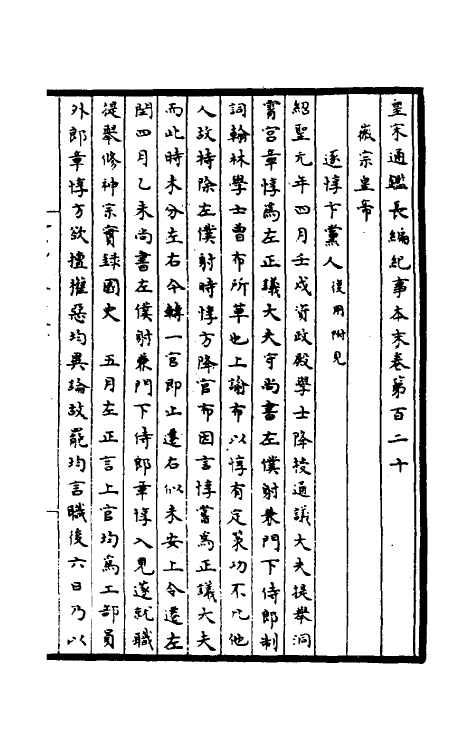 皇宋通鑑長編紀事本末卷第百二十
徽宗皇帝
逐惇卞黨人復用附見
紹聖元年四月壬戌資政殿學士降授通議大夫提舉洞
霄宮章惇為左正議大夫守尚書左僕射兼門下侍郎制
詞翰林學士曾布所草也上諭布以惇有定策功不比他
人故特除左僕射時惇方降官布因言惇嘗為正議大夫
而此時未分左右今轉一官即止還右似未安上令還左
閏四月乙未尚書左僕射兼門下侍郎章惇入見遂就職
提舉修神宗實録國史 五月左正言上官均為工部員
外郎章惇方欲擅權惡均異論故罷均言職後六日乃以